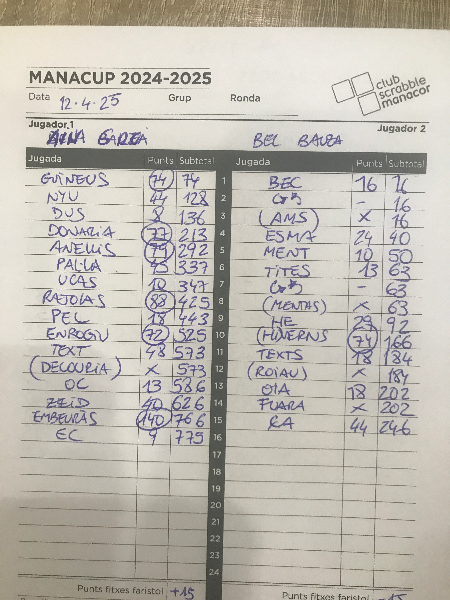 MANACUP 2024-2025
club scrabble manacor
Data 12.4.25 Grup Ronda
Jugador 1 Jugador 2
BEL
Jugada Punts Subtotal Jugada Punts Subtotal
GUINEUS 74 74 1 BEC 16 16
NYU 44 128 2 - 16
DUS 8 136 3 (AMS) x 16
DONARIA 77 213 4 ESMA 24 40
ANELLIS 79 292 5 MENT 10 50
PAL·LA 45 337 6 TITES 13 63
UCAS 10 347 7 - 63
RAJOLAS 88 425 8 (MENTAS) x 63
PEL 18 443 9 HE 29 92
ENROGIU 72 525 10 (HIVERNS) 74 166
TEXT 48 573 11 TEXTS 18 184
(DECOURIA) x 573 12 (ROIAU) x 184
OC 13 586 13 OIA 18 202
ZEID 40 626 14 FUARA x 202
EMBEURÀS 140 766 15 RA 44 246
EC 9 775 16
17
18
19
20
21
22
23
24
Punts fitxes faristol +15 Punts fitxes faristol -15